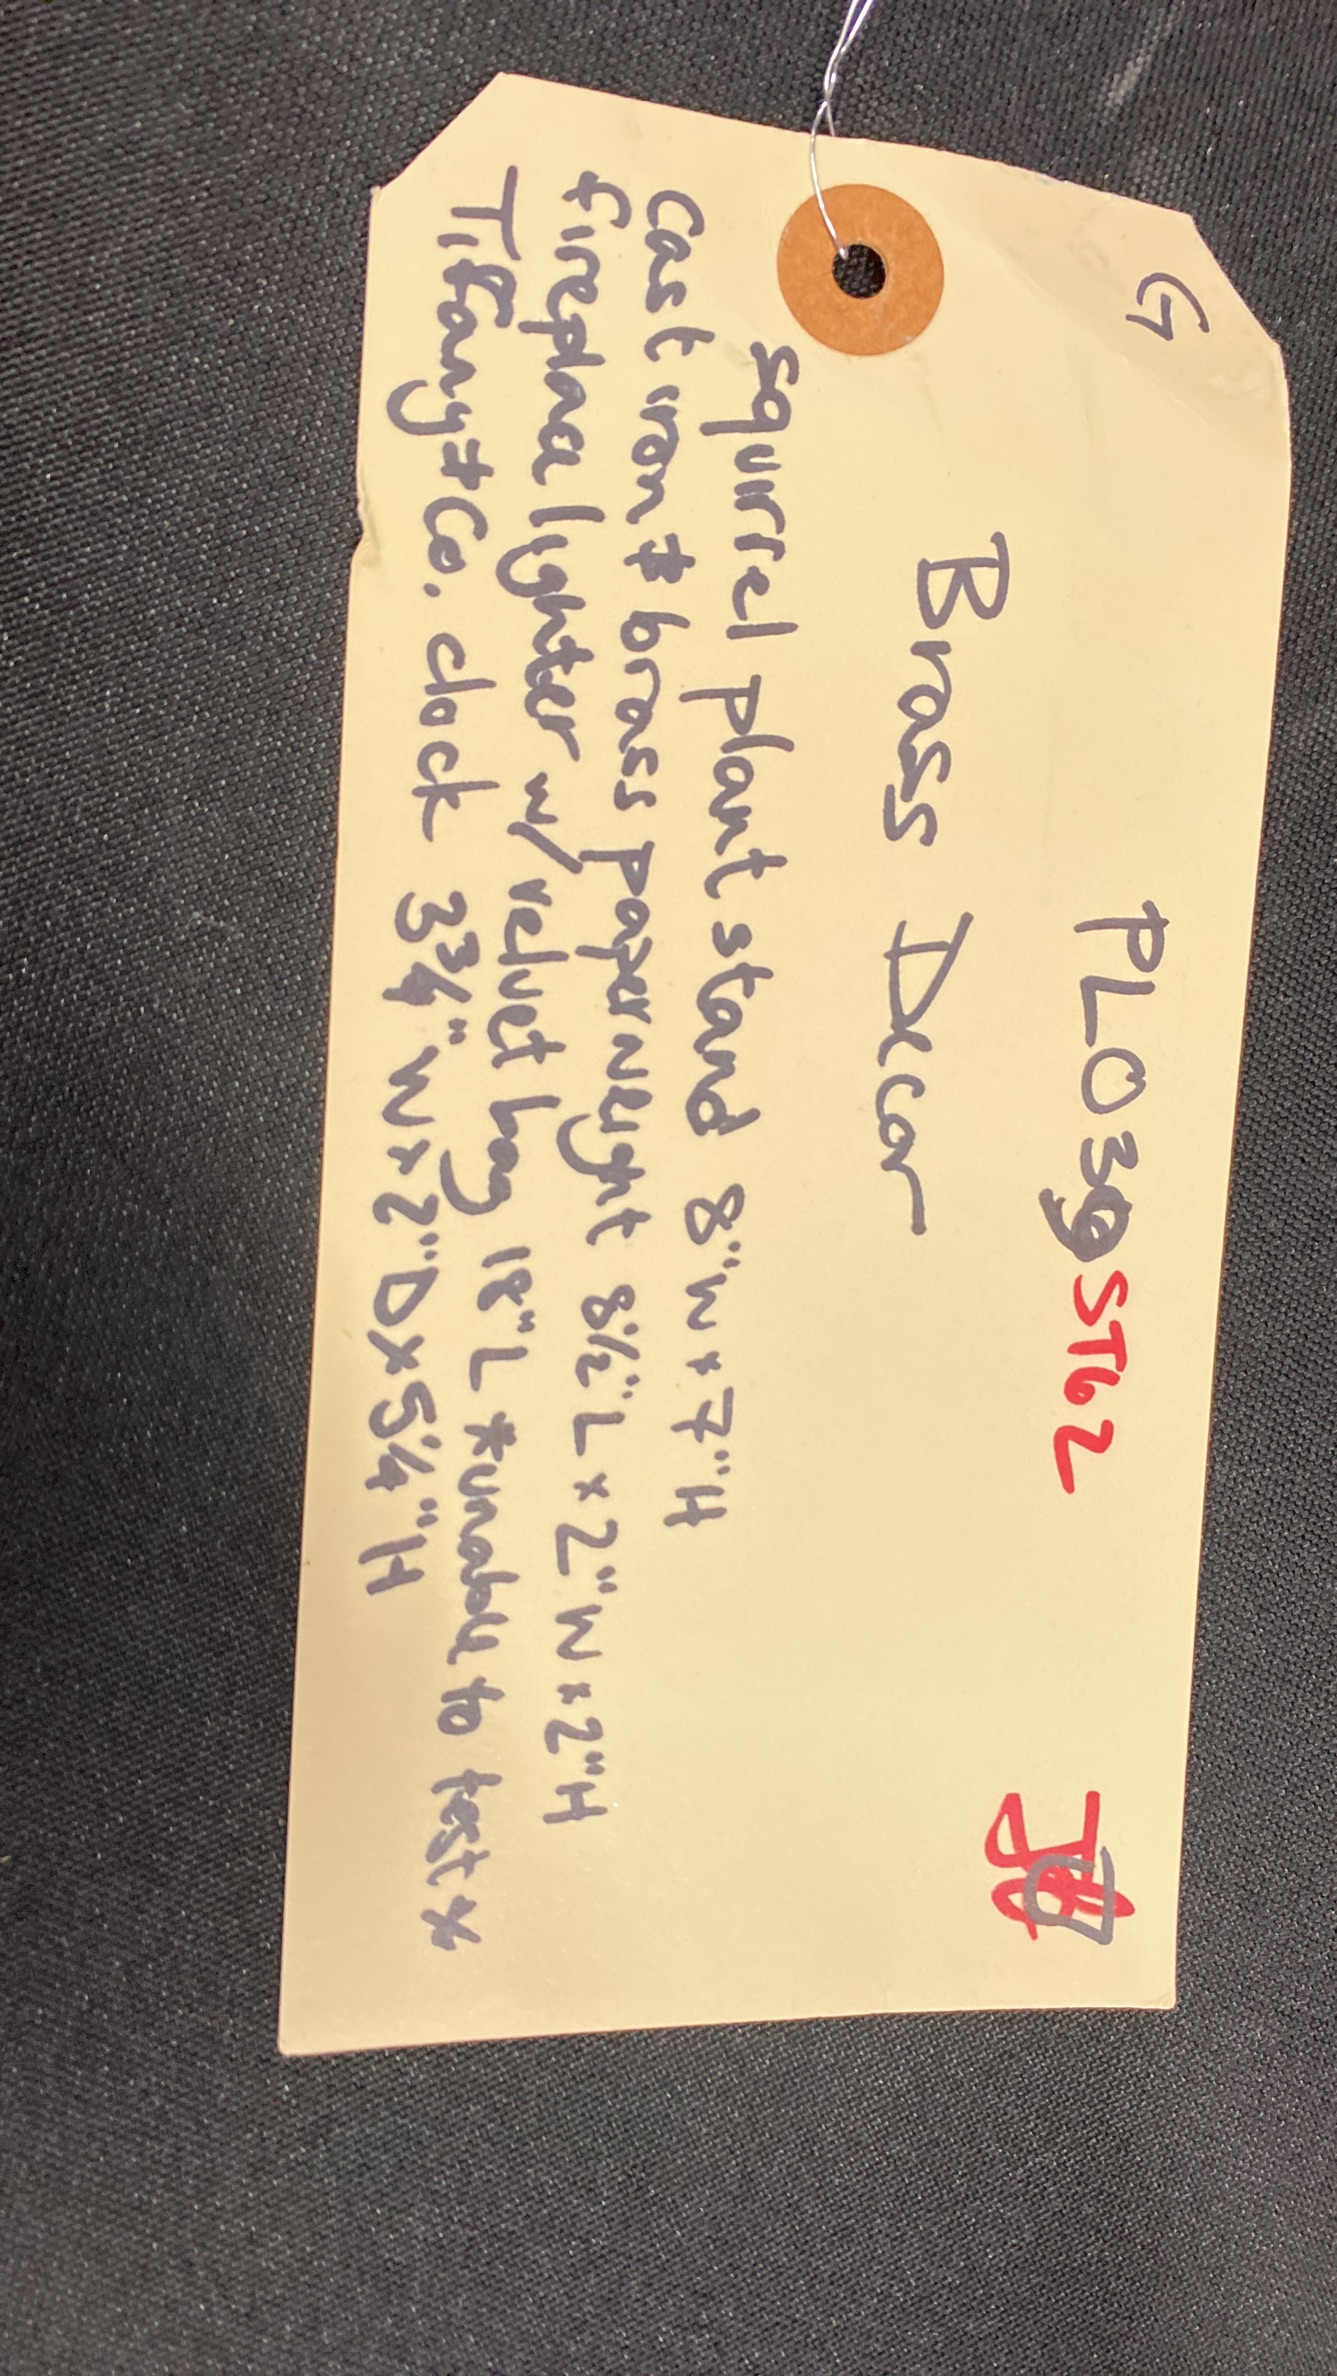 G
PL039ST62
Brass Decor
squirrel plant stand 8"W x 7"H
Cast iron + brass paperweight 8½"L x 2"W x 2"H
fireplace lighter w/ velvet bag 18"L *unable to test*
Tiffany + Co. clock 3¾"W x 2"D x 5¼"H